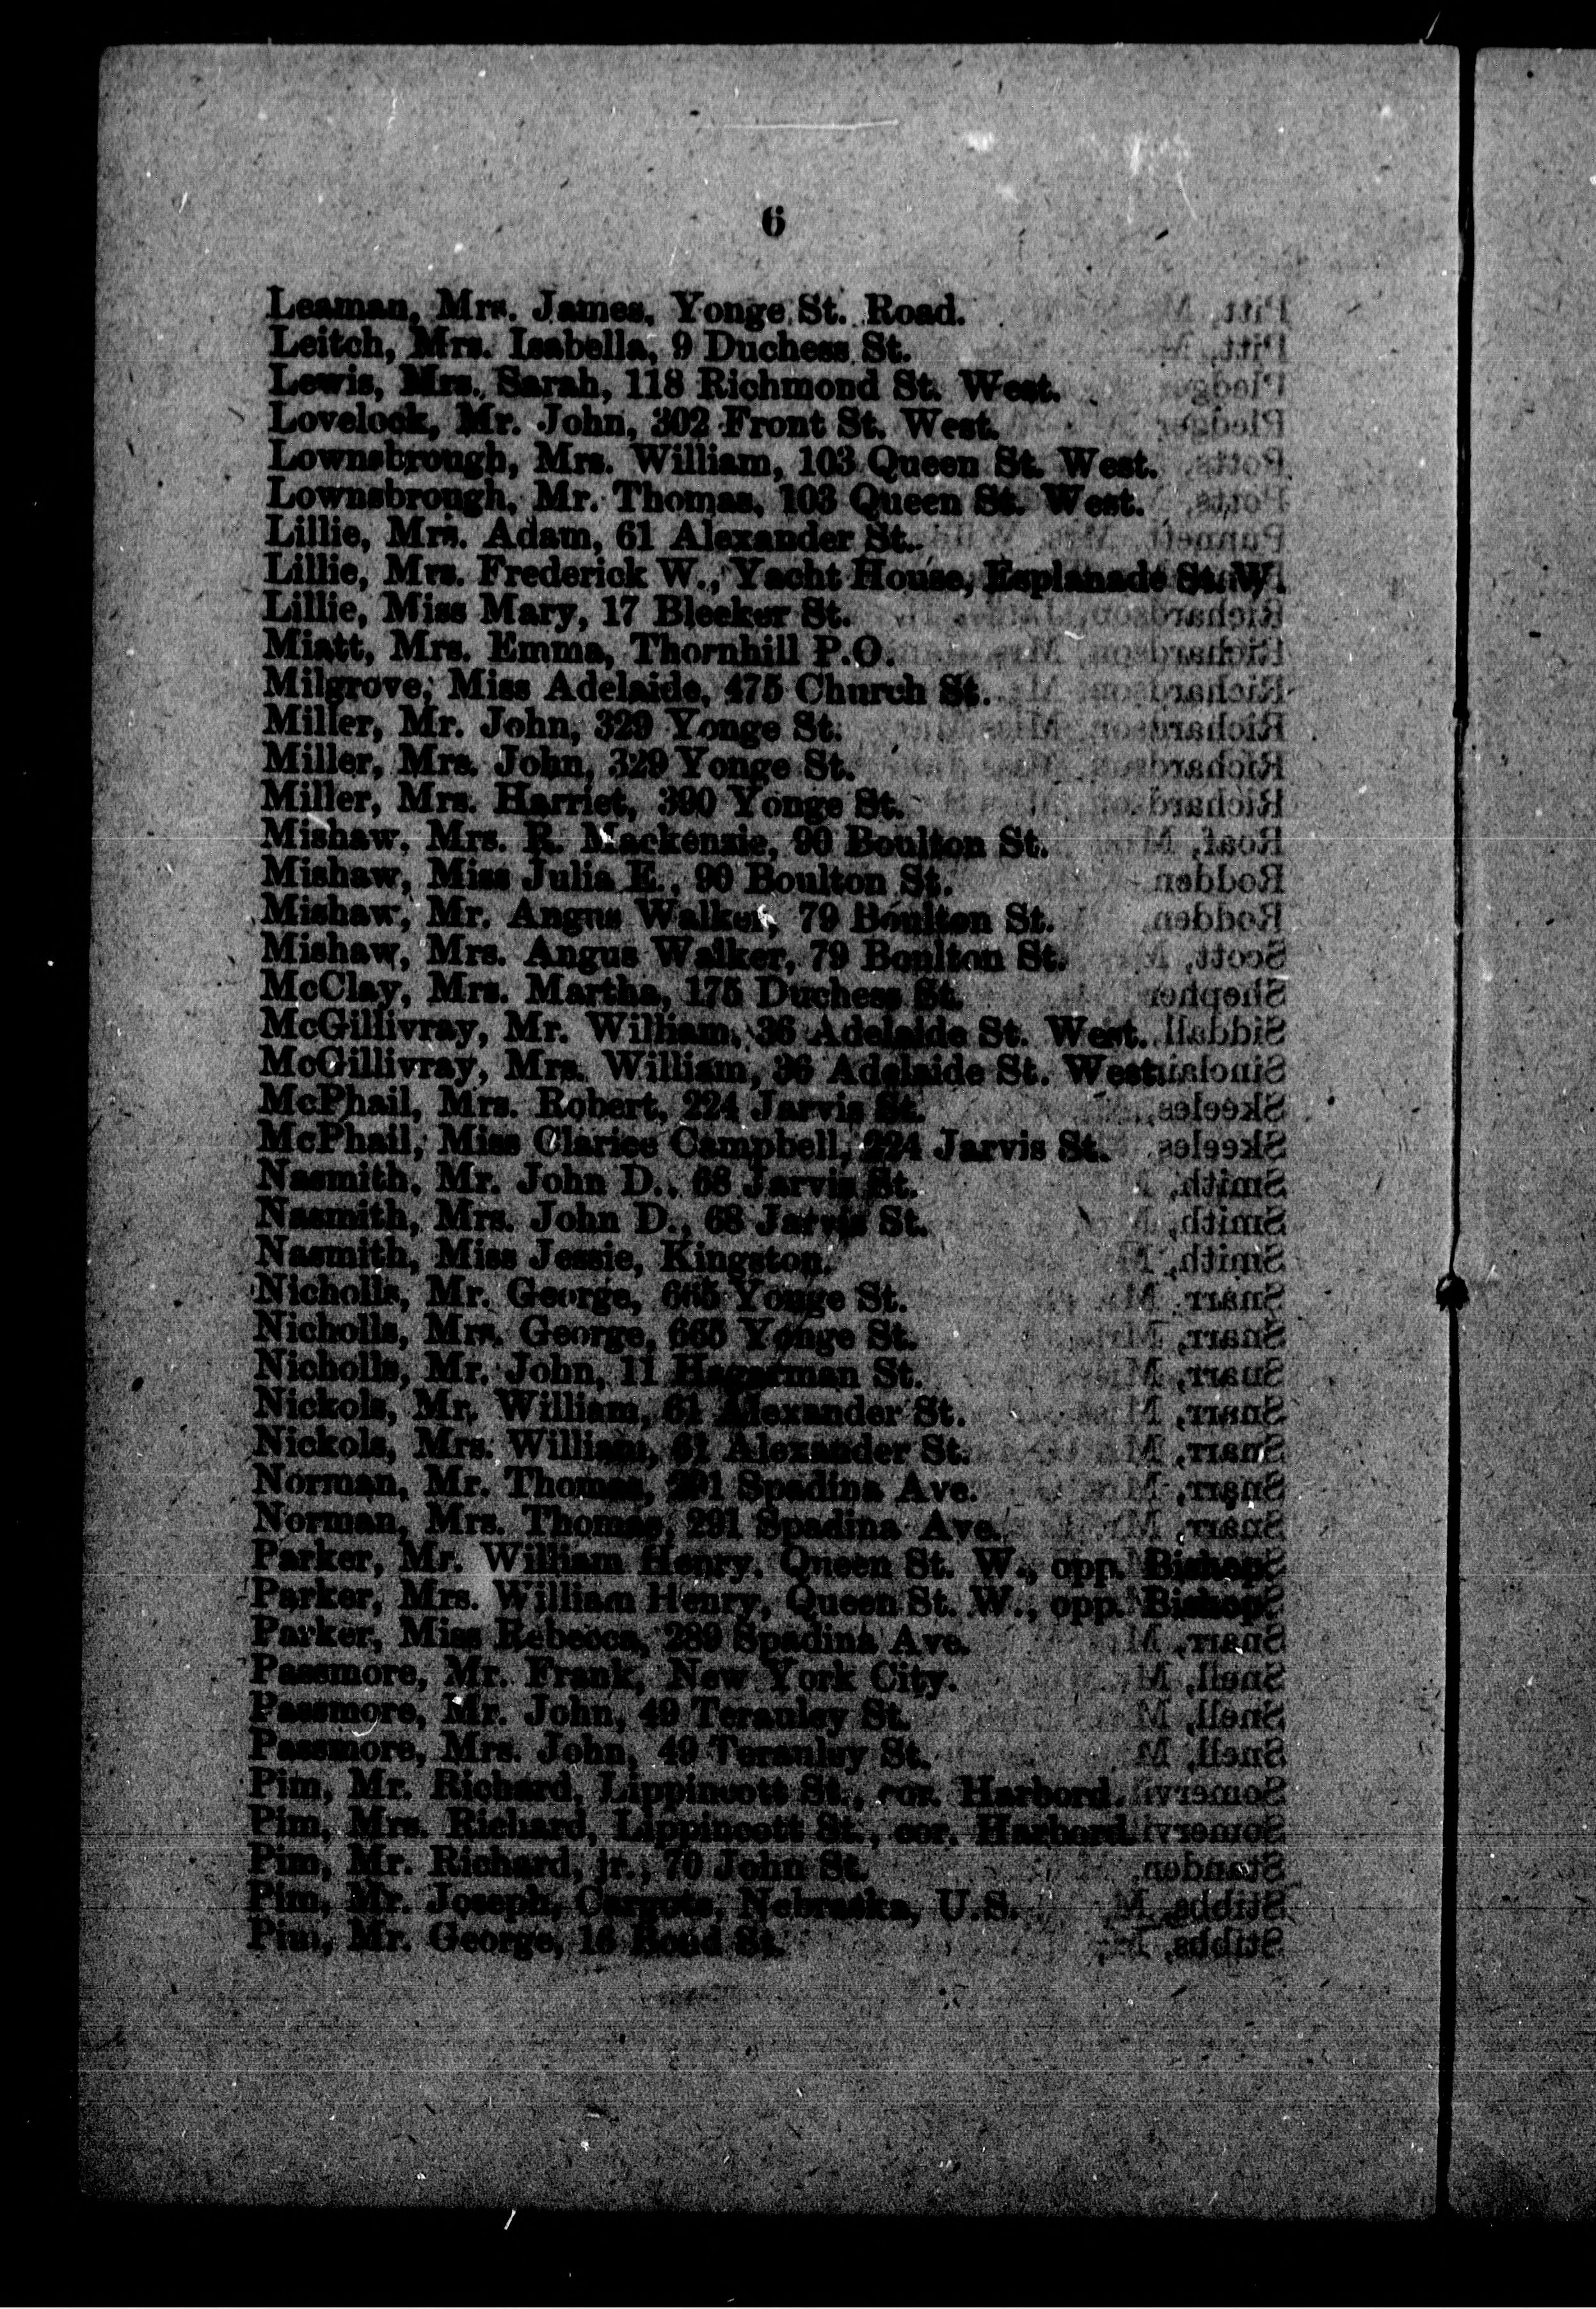 6
Leaman, Mrs. James, Yonge St. Road.
Leitch, Mrs. Isabella, 9 Duchess St.
Lewis, Mrs. Sarah, 118 Richmond St. West.
Lovelock, Mr. John, 302 Front St. West.
Lownsbrough, Mrs. William, 103 Queen St. West.
Lownsbrough, Mr. Thomas, 103 Queen St. West.
Lillie, Mrs. Adam, 61 Alexander St.
Lillie, Mrs. Frederick W., Yacht House, Esplanade St. W.
Lillie, Miss Mary, 17 Bleeker St.
Miatt, Mrs. Emma, Thornhill P.O.
Milgrove, Miss Adelaide, 475 Church St.
Miller, Mr. John, 329 Yonge St.
Miller, Mrs. John, 329 Yonge St.
Miller, Mrs. Harriet, 390 Yonge St.
Mishaw, Mrs. R. Mackenzie, 90 Boulton St.
Mishaw, Miss Julia E., 90 Boulton St.
Mishaw, Mr. Angus Walker, 79 Boulton St.
Mishaw, Mrs. Angus Walker, 79 Boulton St.
McClay, Mrs. Martha, 175 Duchess St.
McGillivray, Mr. William, 36 Adelaide St. West.
McGillivray, Mrs. William, 36 Adelaide St. West.
McPhail, Mrs. Robert, 224 Jarvis St.
McPhail, Miss Clarice Campbell, 224 Jarvis St.
Nasmith, Mr. John D., 68 Jarvis St.
Nasmith, Mrs. John D., 68 Jarvis St.
Nasmith, Miss Jessie, Kingston.
Nicholls, Mr. George, 665 Yonge St.
Nicholls, Mrs. George, 665 Yonge St.
Nicholls, Mr. John, 11 Hagarman St.
Nickols, Mr. William, 61 Alexander St.
Nickols, Mrs. William, 61 Alexander St.
Norman, Mr. Thomas, 291 Spadina Ave.
Norman, Mrs. Thomas, 291 Spadina Ave.
Parker, Mr. William Henry, Queen St. W., opp. Bishop
Parker, Mrs. William Henry, Queen St. W., opp. Bishop
Parker, Miss Rebecca, 289 Spadina Ave.
Passmore, Mr. Frank, New York City.
Passmore, Mr. John, 49 Teranley St.
Passmore, Mrs. John, 49 Teranley St.
Pim, Mr. Richard, Lippincott St., cor. Harbord.
Pim, Mrs. Richard, Lippincott St., cor. Harbord.
Pim, Mr. Richard, jr., 70 John St.
Pim, Mr. Joseph, Nebraska, U.S.
Pim, Mr. George, 16 Bond St.